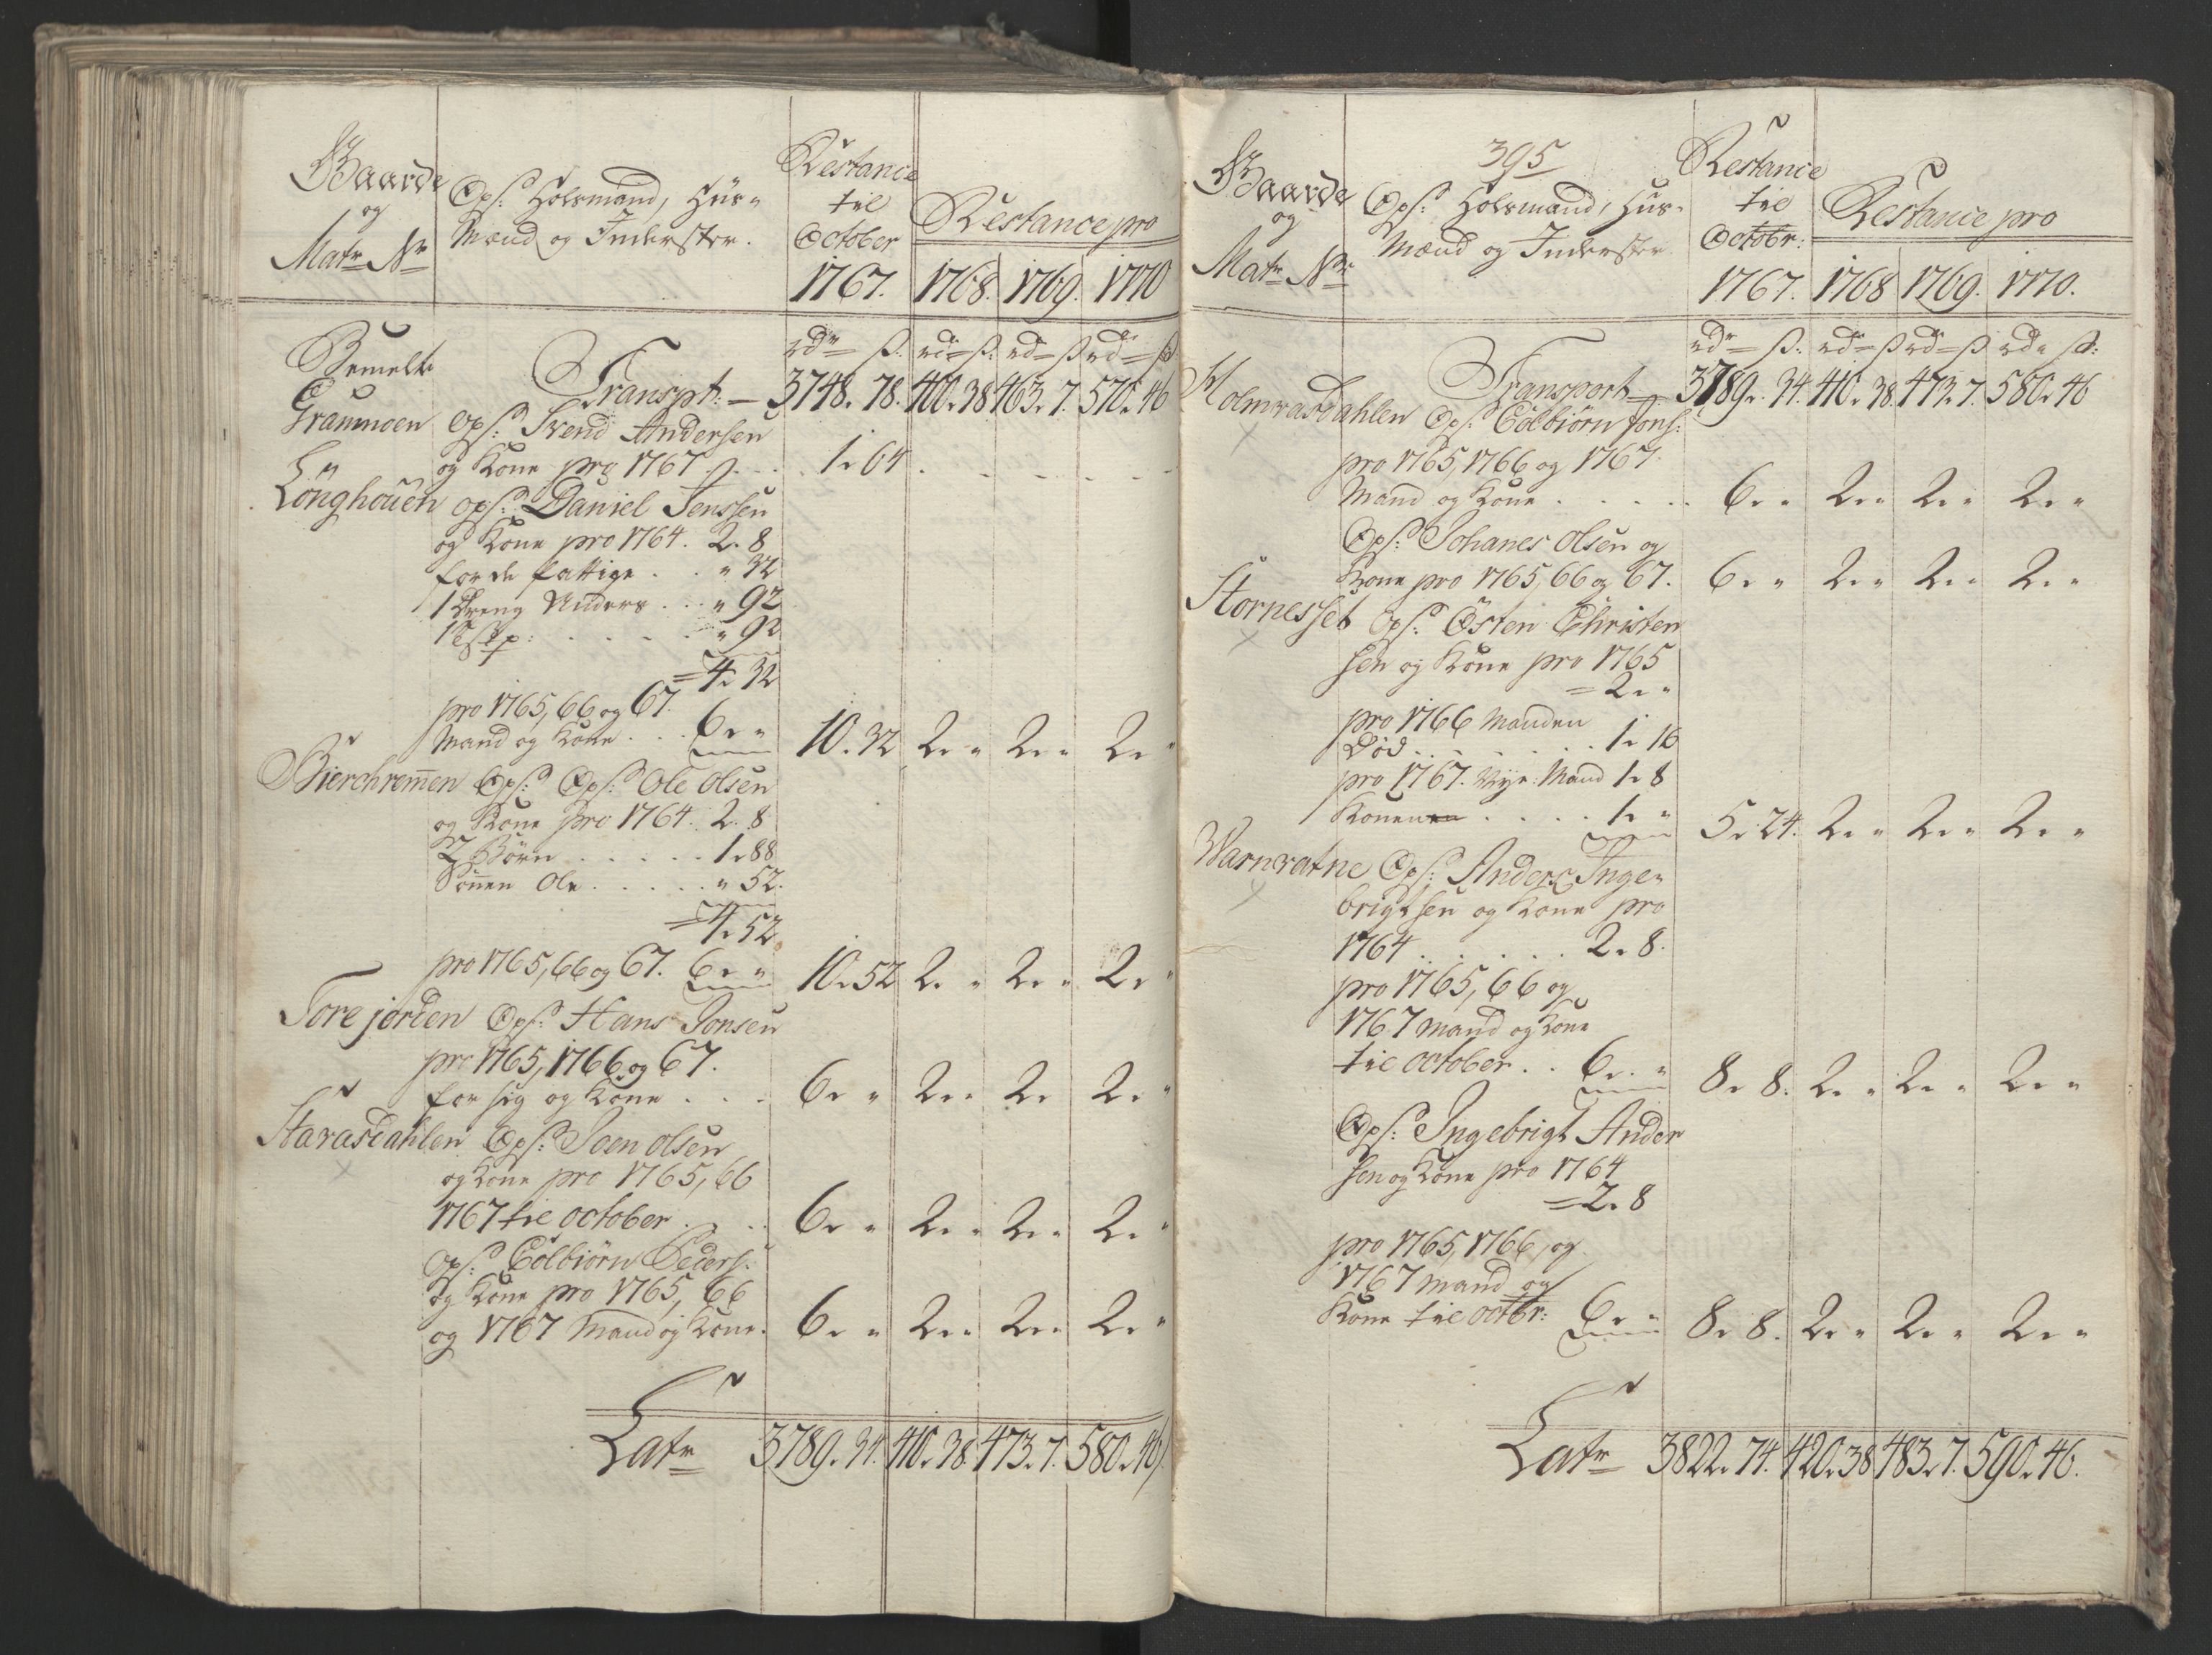 Gaarde
og
Matr Nr
Ops: Holsmand, Huus-
Mænd og Inderster.
Restance
til
October
1767.
Restance pro
1768. 1769. 1770
rdr ß: rdr ß: rd ß rd ß
Bemelte Transpt: 3748. 78. 400. 38 463. 7. 570. 46
Graunoen Ops: Svend Andersen
og Kone pro 1767 . . . 1. 64 . - - - -
Lønghouen Ops: Daniel Jenssen
og Kone pro 1764. 2. 8
for de fattige . . " 32
1 dreng Anders . . . " 92
1 . . . . " 92
= 4. 32
pro 1765, 66 og 67.
Mand og Kone . . . 6. " 10. 32 2. " 2. " 2. "
Bierchremen Ops: Ops: Ole Olsen
og Kone pro 1764. 2. 8
2 Børn . . . . . 1. 88
Sønnen Ole . . . . . " 52.
= 4. 52
pro 1765, 66 og 67. 6. " 10. 52 2. " 2. " 2. "
Torejorden Ops: Hans Jonsen
pro 1765, 1766 og 67.
for sig og Kone . . . 6. " 2. " 2. 2. "
Stavasdahlen Ops: Joen Olsen
og Kone pro 1765, 66
1767 til October . . . 6. " 2. " 2. " 2. "
Ops: Colbiørn Peders:
og Kone pro 1765, 66
og 1767 Mand og Kone. 6. " 2. " 2. " 2. "
Latr 3789. 34. 410. 38 473. 7. 580. 46
395
Gaarde
og
Matr Nr
Ops: Holsmand, Hus-
Mænd og Inderster
Restance
til
Octobr:
1767.
Restance pro
1768 1769. 1770.
rdr ß: rdr ß rdr ß rdr ß:
Holmvasdahlen Transport 3789. 34. 410. 38. 473. 7. 580. 46
Ops: Colbiørn Jons:
pro 1765, 1766 og 1767.
Mand og Kone . . . . . 6. " 2. " 2. " 2. "
Ops: Johanes Olsen og
Kone pro 1765, 66 og 67. 6. " 2. " 2. " 2. "
Stornesset Ops: Østen Christen
sen og Kone pro 1765
= 2. "
pro 1766 Manden
død . . . . . . 1. 16
pro 1767. Nye: Mand 1. 8
Konen . . . . 1. " 5. 24. 2. " 2. " 2. "
Warnvatne Ops: Anders Inge-
brigtsen og Kone pro
1764 . . . . . 2. 8.
pro 1765, 66 og
1767 mand og Kone
til October . . 6. " 8. 8. 2. " 2. " 2. "
Ops: Ingebrigt Ander
sen og Kone pro 1764
= 2. 8
pro 1765, 1766, og
1767 mand og
Kone til Octbr: 6. " 8. 8. 2. " 2. " 2. "
Latr 3822. 74. 420. 38 483. 7. 590. 46.